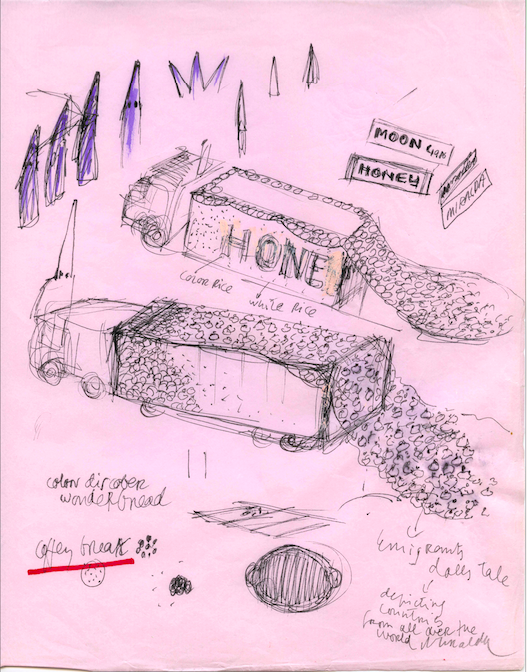 MOON
HONEY
HONE
COLOR RICE
WHITE RICE
color
wonder bread
coffey break
Emigrants
dolls tale
depicting
countries
from all over the
world